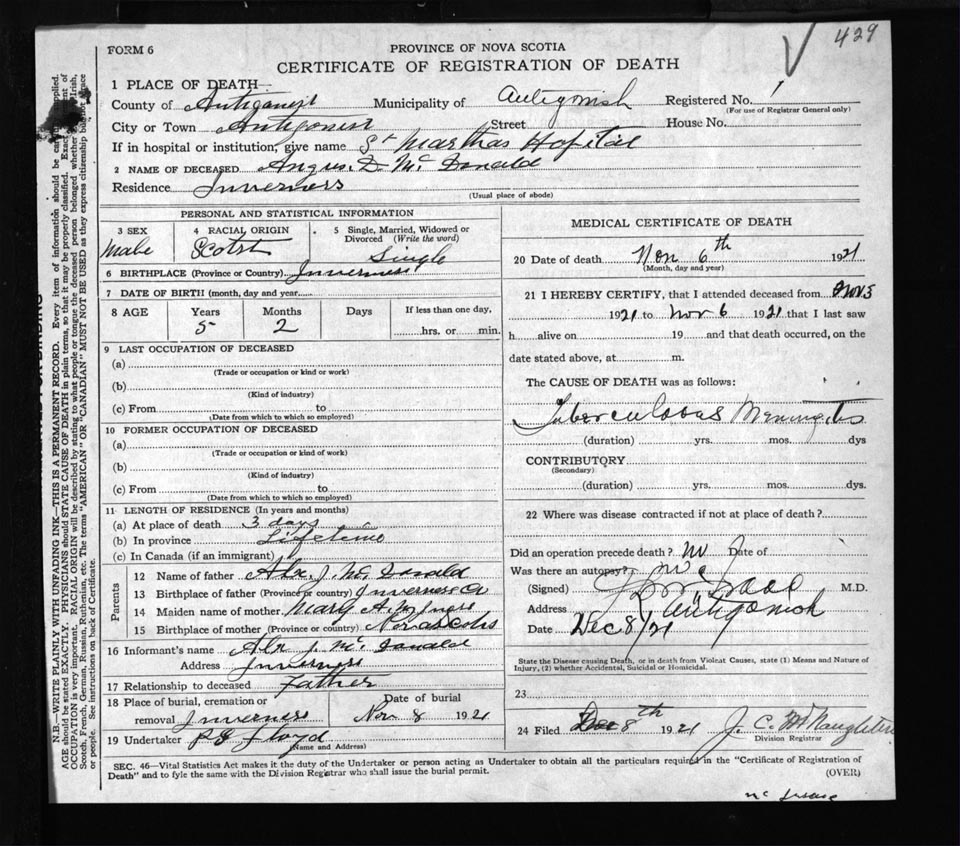 429
FORM 6
PROVINCE OF NOVA SCOTIA
CERTIFICATE OF REGISTRATION OF DEATH
1 PLACE OF DEATH—
County of Antigonish Municipality of Antigonish Registered No. 1
(For use of Registrar General only)
City or Town Antigonish Street House No.
If in hospital or institution, give name St Marthas Hospital
2 NAME OF DECEASED Angus D Mc Donald
Residence Inverness
(Usual place of abode)
PERSONAL AND STATISTICAL INFORMATION
3 SEX 4 RACIAL ORIGIN 5 Single, Married, Widowed or Divorced (Write the word)
Male Scotch Single
6 BIRTHPLACE (Province or Country) Inverness
7 DATE OF BIRTH (month, day and year)
8 AGE Years Months Days If less than one day,
5 2 hrs. or min.
9 LAST OCCUPATION OF DECEASED
(a)
(Trade or occupation or kind or work)
(b)
(Kind of industry)
(c) From to
(Date from which to which so employed)
10 FORMER OCCUPATION OF DECEASED
(a)
(Trade or occupation or kind of work)
(b)
(Kind of industry)
(c) From to
(Date from which to which so employed)
11 LENGTH OF RESIDENCE (In years and months)
(a) At place of death 3 days
(b) In province Lifetime
(c) In Canada (if an immigrant)
Parents
12 Name of father Alx. J. Mc Donald
13 Birthplace of father (Province or country) Inverness Co
14 Maiden name of mother Mary A.
15 Birthplace of mother (Province or country) Nova Scotia
16 Informant's name Alx J. Mc Donald
Address Inverness
17 Relationship to deceased Father
18 Place of burial, cremation or removal Inverness Date of burial Nov 8 1921
19 Undertaker P S Floyd
(Name and Address)
MEDICAL CERTIFICATE OF DEATH
20 Date of death Nov 6th 1921
(Month, day and year)
21 I HEREBY CERTIFY, that I attended deceased from Nov 3
1921 to Nov 6 1921 that I last saw
h alive on 19 and that death occurred, on the
date stated above, at m.
The CAUSE OF DEATH was as follows:
Tuberculous Meningitis
(duration) yrs. mos. dys
CONTRIBUTORY
(Secondary)
(duration) yrs. mos. dys.
22 Where was disease contracted if not at place of death?
Did an operation precede death? no Date of
Was there an autopsy? no
(Signed) M.D.
Address Antigonish
Date Dec 8/21
State the Disease causing Death, or in death from Violent Causes, state (1) Means and Nature of
Injury, (2) whether Accidental, Suicidal or Homicidal.
23
24 Filed Dec 8th 1921 J. C.
Division Registrar
SEC. 46—Vital Statistics Act makes it the duty of the Undertaker or person acting as Undertaker to obtain all the particulars required in the "Certificate of Registration of
Death" and to fyle the same with the Division Registrar who shall issue the burial permit.
(OVER)